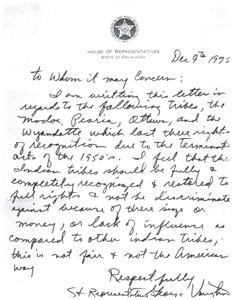 HOUSE OF REPRESENTATIVES
STATE OF OKLAHOMA
Dec 9th 1975
To Whom it may Concern:
I am writting this letter in
regards to the following tribes, the
Modoc, Peoria, Ottawa, and the
Wyandotte which lost there rights
of recognition due to the terminate
acts of the 1950's. I feel that the
Indian tribes should be fully &
completely recognized & restored to
full rights & not be discriminate
against because of there size or
money, or lack of influence as
compared to other indian tribes,
this is not fair & not the American
way
Respectfully
St Representative George